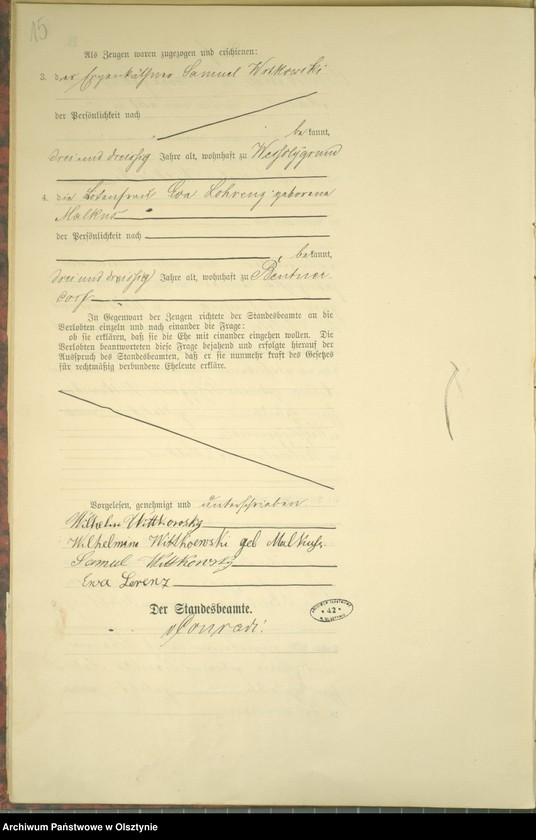 15
Als Zeugen waren zugezogen und erschienen:
3. der Eigenkäthner Samuel Witkowski
der Persönlichkeit nach
be kannt,
drei und dreissig Jahre alt, wohnhaft zu
4. die Losfrau Eva Lohrenz geborene
Malkus
der Persönlichkeit nach
be kannt,
drei und dreissig Jahre alt, wohnhaft zu Beutner
dorf
In Gegenwart der Zeugen richtete der Standesbeamte an die
Verlobten einzeln und nach einander die Frage:
ob sie erklären, daß sie die Ehe mit einander eingehen wollen. Die
Verlobten beantworteten diese Frage bejahend und erfolgte hierauf der
Ausspruch des Standesbeamten, daß er sie nunmehr kraft des Gesetzes
für rechtmäßig verbundene Eheleute erkläre.
Vorgelesen, genehmigt und unterschrieben
Wilhelm Wittkowsky
Wilhelmine Wittkoewski geb Malkus.
Samuel Wittkowsky
Ewa Lorenz
Der Standesbeamte.
Conradi.
* 42 *
Archiwum Państwowe w Olsztynie